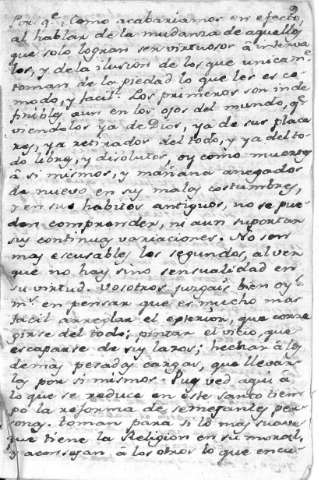 Por qᵉ. Como acabariamos en efecto,
al hablar de la mudanza de aquellos
que solo logran ser virtuosos à interva-
los, y de la ilusion de los que unicamᵗᵉ
toman de la piedad lo que les es co-
modo, y facil. Los primeros son inde-
finibles aun en los ojos del mundo, qᵉ
viendolos ya de Dios, ya de sus place-
res, ya retirados del todo, y ya del to-
do libres, y disolutos, oy como muertos
à si mismos, y mañana anegados
de nuevo en sus malas costumbres,
y en sus habitos antiguos, no se pue-
den comprender, ni aun suportar
sus continuas variaciones. No son
mas escusables los segundos, al ver
que no hay sino sensualidad en
su virtud. Vosotros juzgais bien oy
en pensar que es mucho mas
facil arreglar el exterior, que corre-
girse del todo; pintar el vicio, que
escaparse de sus lazos; hechar à los
demas pesadas cargas, que llevar-
las por si mismos. Pues ved aqui à
lo que se reduce en este santo tiem-
po la reforma de semejantes per-
sonas. toman para si lo mas suave
que tiene la Religion en su moral,
y aconsejan à los otros lo que encu-